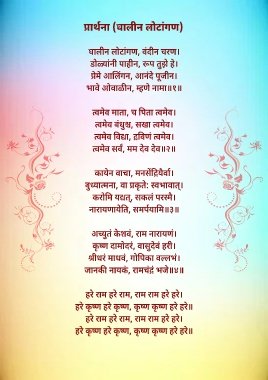 प्रार्थना (घालीन लोटांगण)
घालीन लोटांगण, वंदीन चरण।
डोळ्यांनी पाहीन, रूप तुझे हे।
प्रेमे आलिंगन, आनंदे पूजीन।
भावे ओवाळीन, म्हणे नामा॥१॥
त्वमेव माता, च पिता त्वमेव।
त्वमेव बंधुश्च, सखा त्वमेव।
त्वमेव विद्या, द्रविणं त्वमेव।
त्वमेव सर्वं, मम देव देव॥२॥
कायेन वाचा, मनसेंद्रियैर्वा।
बुध्यात्मना, वा प्रकृते: स्वभावात्।
करोमि यद्यत्, सकलं परस्मै।
नारायणायेति, समर्पयामि॥३॥
अच्युतं केशवं, राम नारायणं।
कृष्ण दामोदरं, वासुदेवं हरी।
श्रीधरं माधवं, गोपिका वल्लभं।
जानकी नायकं, रामचंद्रं भजे॥४॥
हरे राम हरे राम, राम राम हरे हरे।
हरे कृष्ण हरे कृष्ण, कृष्ण कृष्ण हरे हरे॥
हरे राम हरे राम, राम राम हरे हरे।
हरे कृष्ण हरे कृष्ण, कृष्ण कृष्ण हरे हरे॥